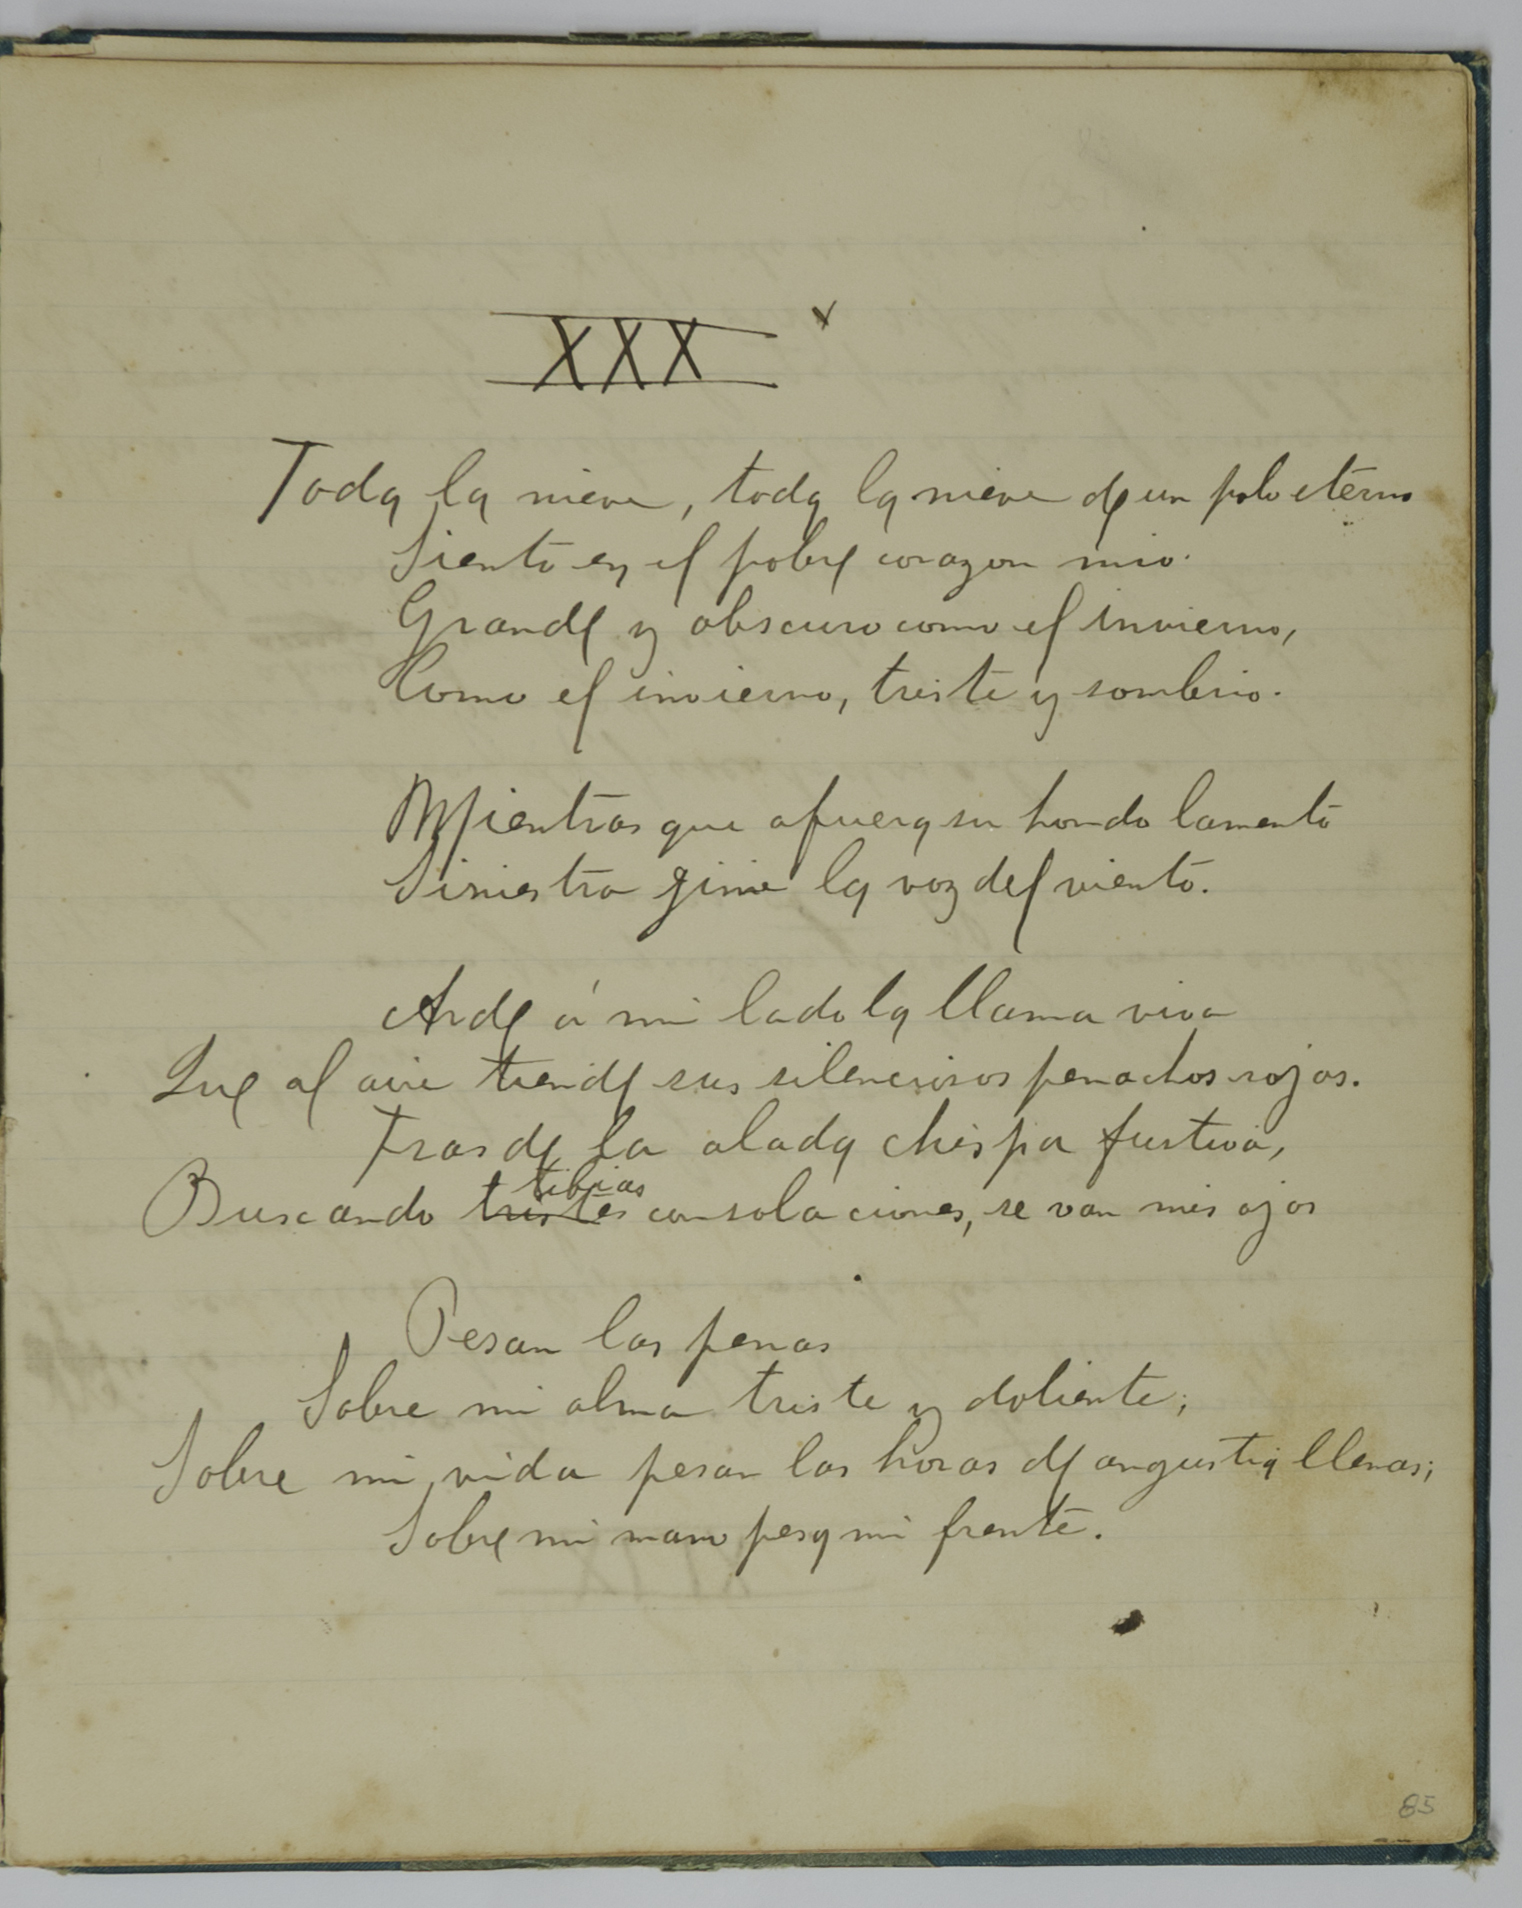 XXX
Toda la nieve, toda la nieve de un polo eterno
Siento en el pobre corazon mio.
Grande y obscuro como el invierno,
Como el invierno, triste y sombrio.
Mientras que afuera su hondo lamento
Siniestra gime la voz del viento.
Arde á mi lado la llama viva
Que al aire tiende sus silenciosos penachos rojos.
Tras de la alada chispa furtiva,
tibias
Buscando tristes consolaciones, se van mis ojos
Pesan las penas
Sobre mi alma triste y doliente;
Sobre mi vida pesan las horas de angustia llenas;
Sobre mi mano pesa mi frente.
85